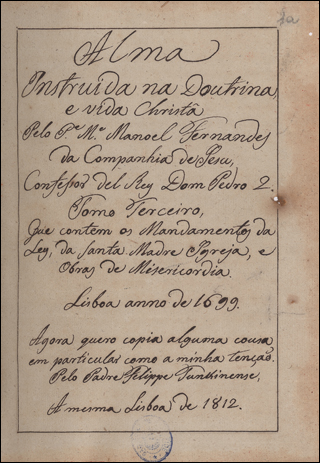 Alma
Instruida na Doutrina
e vida Christã
Pelo P.e M.e Manoel Fernandes
da Companhia de Jesu,
Confessor del Rey Dom Pedro 2.
Tomo Terceiro,
Que contem os Mandamentos da
Ley, da Santa Madre Igreja, e
Obras de Misericordia.
Lisboa anno de 1699.
Agora quero copia alguma cousa,
em particular como a minha tenção.
Pelo Padre Felippe Tunkinense,
A mesma Lisboa de 1812.